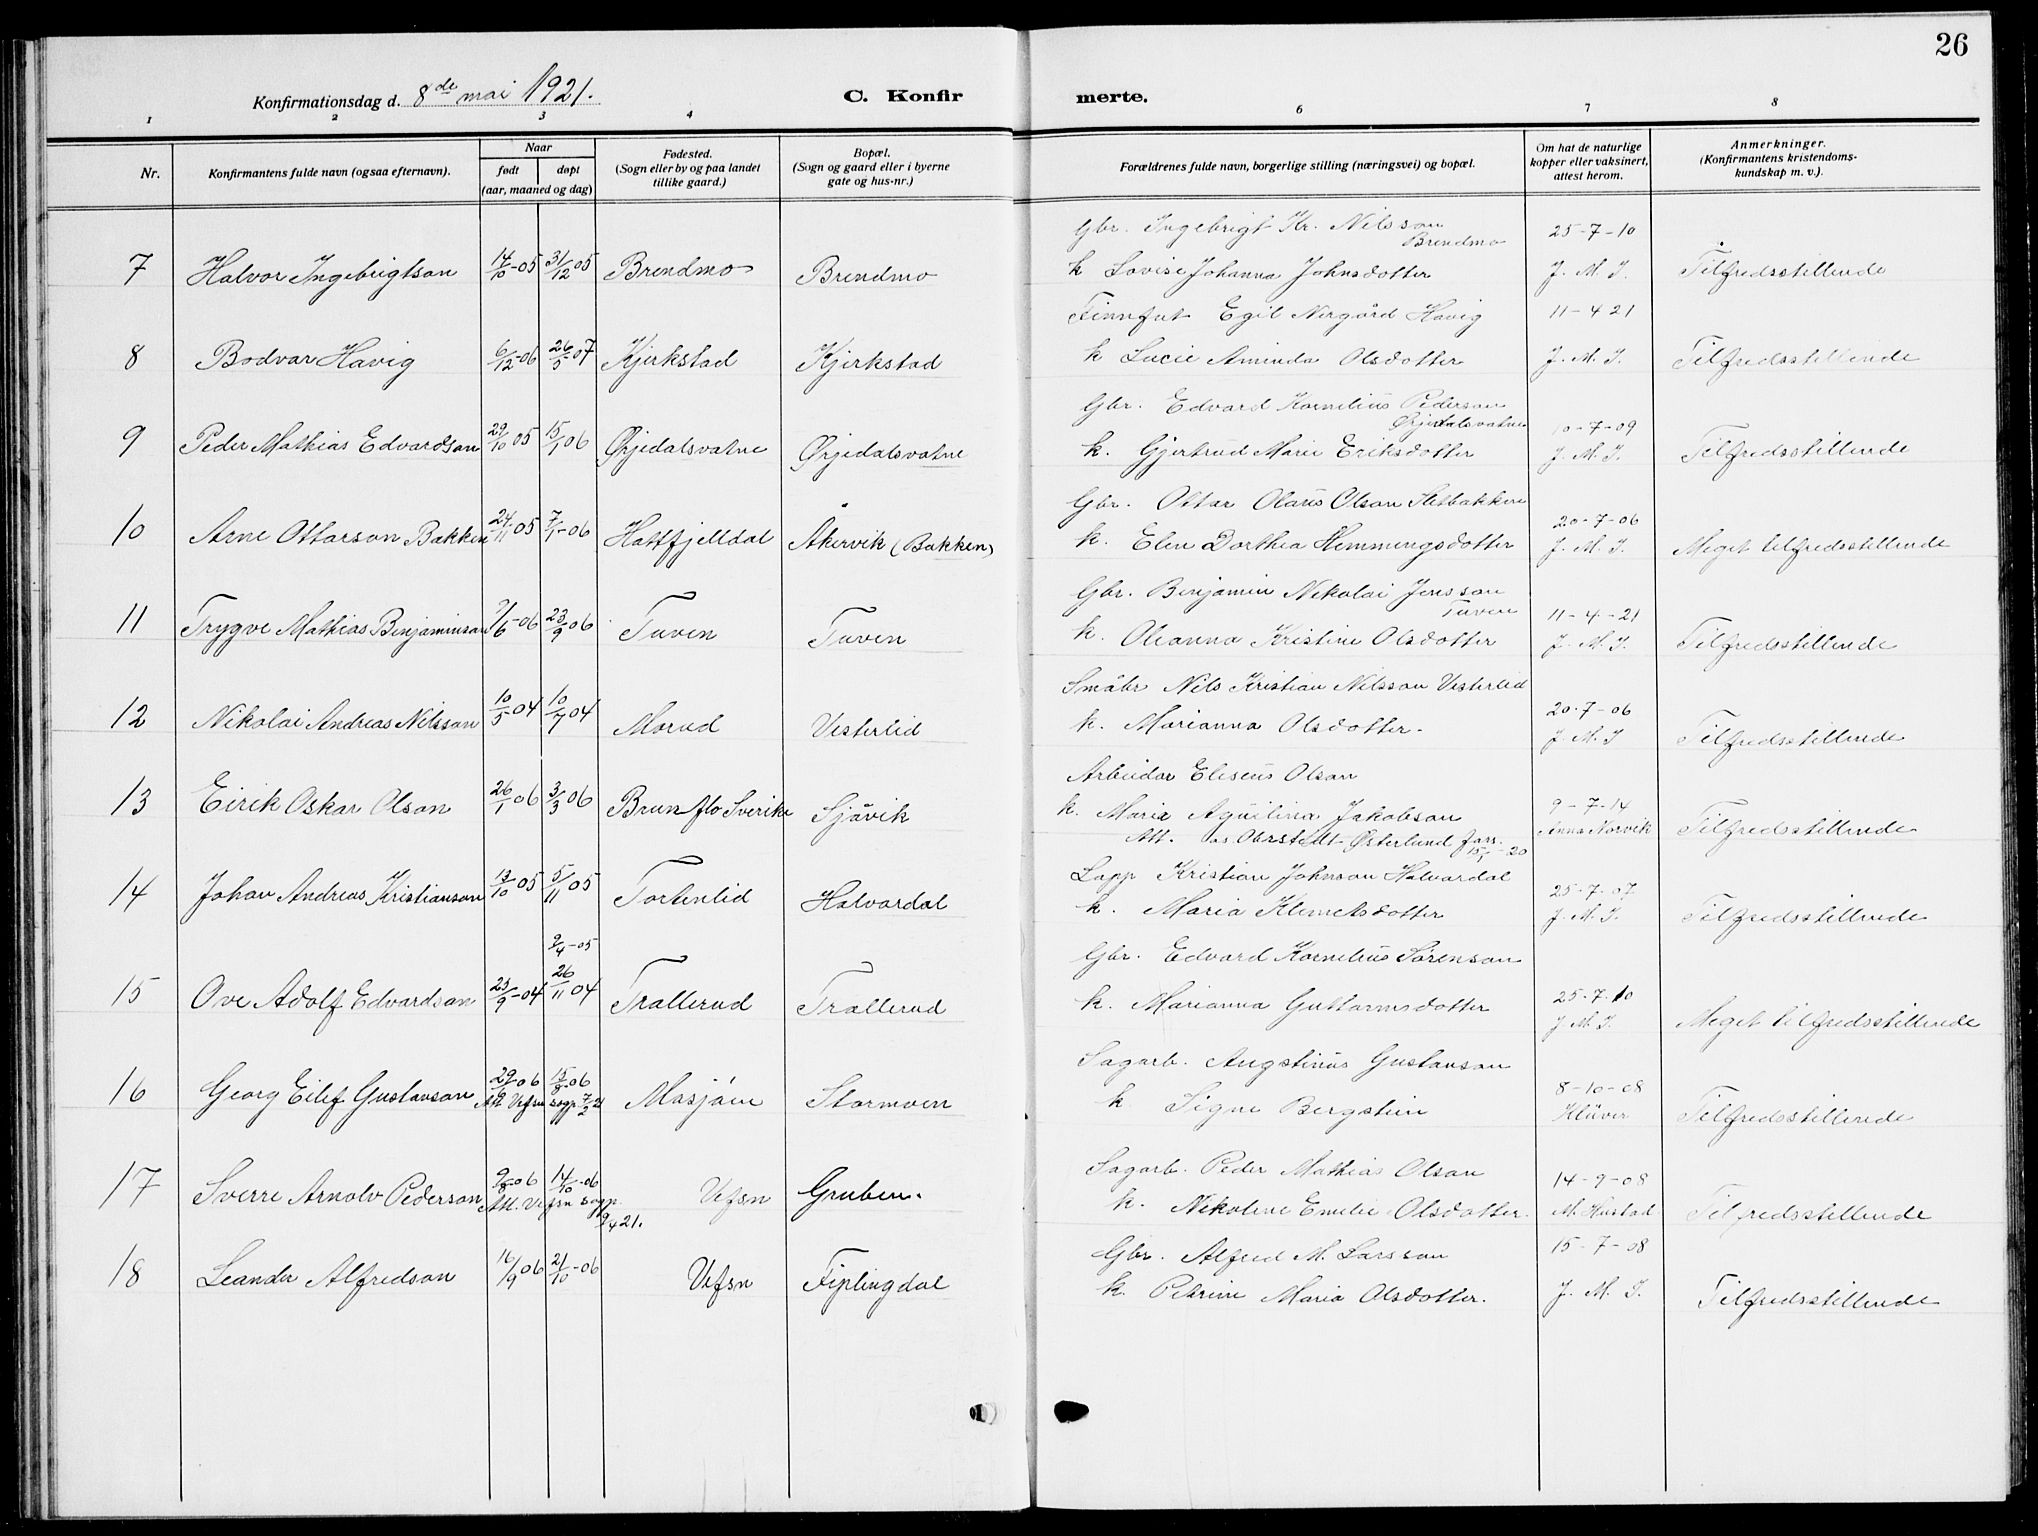 26
Konfirmationsdag d. 8de mai 1921.
C. Konfir
merte.
1 2 3 4 6 7 8
Nr.
Konfirmantens fulde navn (ogsaa efternavn).
Naar
født døpt
(aar, maaned og dag)
Fødested.
(Sogn eller by og paa landet
tillike gaard.)
Bopæl.
(Sogn og gaard eller i byerne
gate og hus-nr.)
Forældrenes fulde navn, borgerlige stilling (næringsvei) og bopæl.
Om hat de naturlige
kopper eller vaksinert,
attest herom.
Anmerkninger.
(Konfirmantens kristendoms-
kundskap m. v.).
Gbr. Ingebrigt Kr. Nilsson 25-7-10
Brendmo
7 Halvor Ingebrigtson 14/10-05 31/12 05 Brendmo Brendmo k Lovise Johanna Johnsdotter J. M. J. Tilfredsstillende
Finnfut Egil Nergård Havig 11-4 21
8 Bodvar Havig 6/12-06 26/5-07 Kjerkstad Kjerkstad k Lucie Aminda Olsdotter J. M. J. Tilfredsstillende
Gbr. Edvard Kornelius Pederson
Ørjedalsvatne 10-7-09
9 Peder Mathias Edvardson 29/10 05 15/1 06 Ørjedalsvatne Ørjedalsvatne k. Gjertrud Marie Eriksdotter J. M. J. Tilfredsstillende
Gbr. Ottar Olaus Olson Sletbakken
20-7-06
10 Arne Ottarson Bakken 24/11 05 7/1-06 Hattfjelldal Åkervik (Bakken) k. Elen Dorthea Hemmingsdotter J. M. J. Meget tilfredsstillende
Gbr. Benjamin Nikolai Jensson
Tuven 11-4-21
11 Trygve Mathias Benjaminson 7/6-06 23/9 06 Tuven Tuven k. Oleanna Kristine Olsdotter J. M. J. Tilfredsstillende
Småbr Nils Kristian Nilsson Vesterlid
20-7-06
12 Nikolai Andreas Nilsson 10/5 04 10/7 04 Morud Vesterlid k. Marianna Olsdotter. J. M. J Tilfredsstillende
Arbeidar Eliseus Olson
9-7-14
13 Eirik Oskar Olson 26/1 06 3/3 06 Brunflo Sverike Sjåvik k. Maria Aquilina Jakobson Anna Norvik Tilfredsstillende
Att. Østerlund 15/1-20
Lapp Kristian Johnson Halvardal
25-7-07
14 Johan Andreas Kristianson 13/10 05 5/11 05 Tortenlid Halvardal k. Maria Klemetsdotter J. M. J. Tilfredsstillende
9/4-05
Gbr. Edvard Kornelius Sørenson
25-7-10
15 Ove Adolf Edvardson 23/9-04 26/11 04 Trallerud Trallerud k. Marianna Guttormsdotter J. M. J. Meget tilfredsstillende
Sagarb. Augstinus Gustavson
8-10-08
16 Georg Eilef Gustavson 29/6-06 15/8-06 Mosjøen Stormoen k Signe Bergstein Klüver Tilfredsstillende
Att. Vefsn sogp 7/2 21
Sagarb. Peder Mathias Olson
14-9-08
17 Sverre Arnolv Pederson 9/8-06 14/10-06 Vefsn Gruben. k. Nikoline Emelie Olsdotter. M. Hustad Tilfredsstillende
Att. Vefsn sogp. 9/4 21.
Gbr. Alfred M. Larsson 15-7-08
18 Leander Alfredson 16/9 06 21/10-06 Vefsn Fiplingdal k. Petrine Maria Olsdotter. J. M. J. Tilfredsstillende